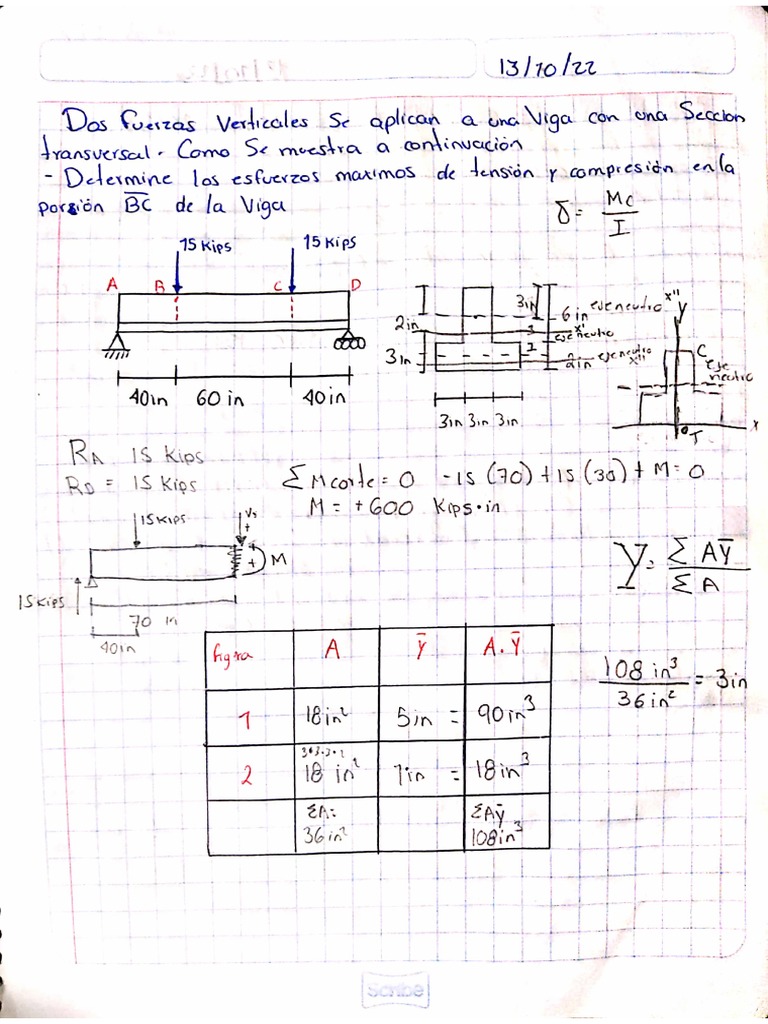 13/10/22
Dos fuerzas Verticales Se aplican a una Viga con una Sección
transversal. Como Se muestra a continuación
- Determine los esfuerzos maximos de tensión y compresión en la
porsión BC de la Viga
δ = Mc/I
15 Kips 15 Kips
A B C D
40in 60 in 40in
2in
3in
3in
6 in
eje neutro x''
x'
3
eje neutro
1
2in eje neutro
x''
3in 3in 3in
y
C
eje
neutro
x
T
RA 15 Kips
RD = 15 Kips
Σ M corte = 0 -15 (70) + 15 (30) + M = 0
M = + 600 Kips·in
15 Kips
+
+
+
M
15 Kips
70 in
40in
Y = Σ Aȳ / Σ A
figura A ȳ A·ȳ
1 18in² 5in = 90in³
2 18 in² 1in = 18in³
ΣA: ΣAȳ
36in² 108in³
108 in³ / 36 in² = 3in
Scribe